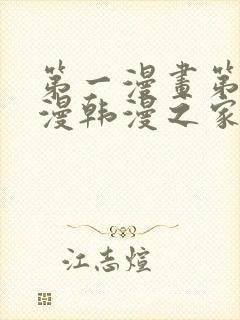 第一漫畫第
漫韩漫之家
江志煊